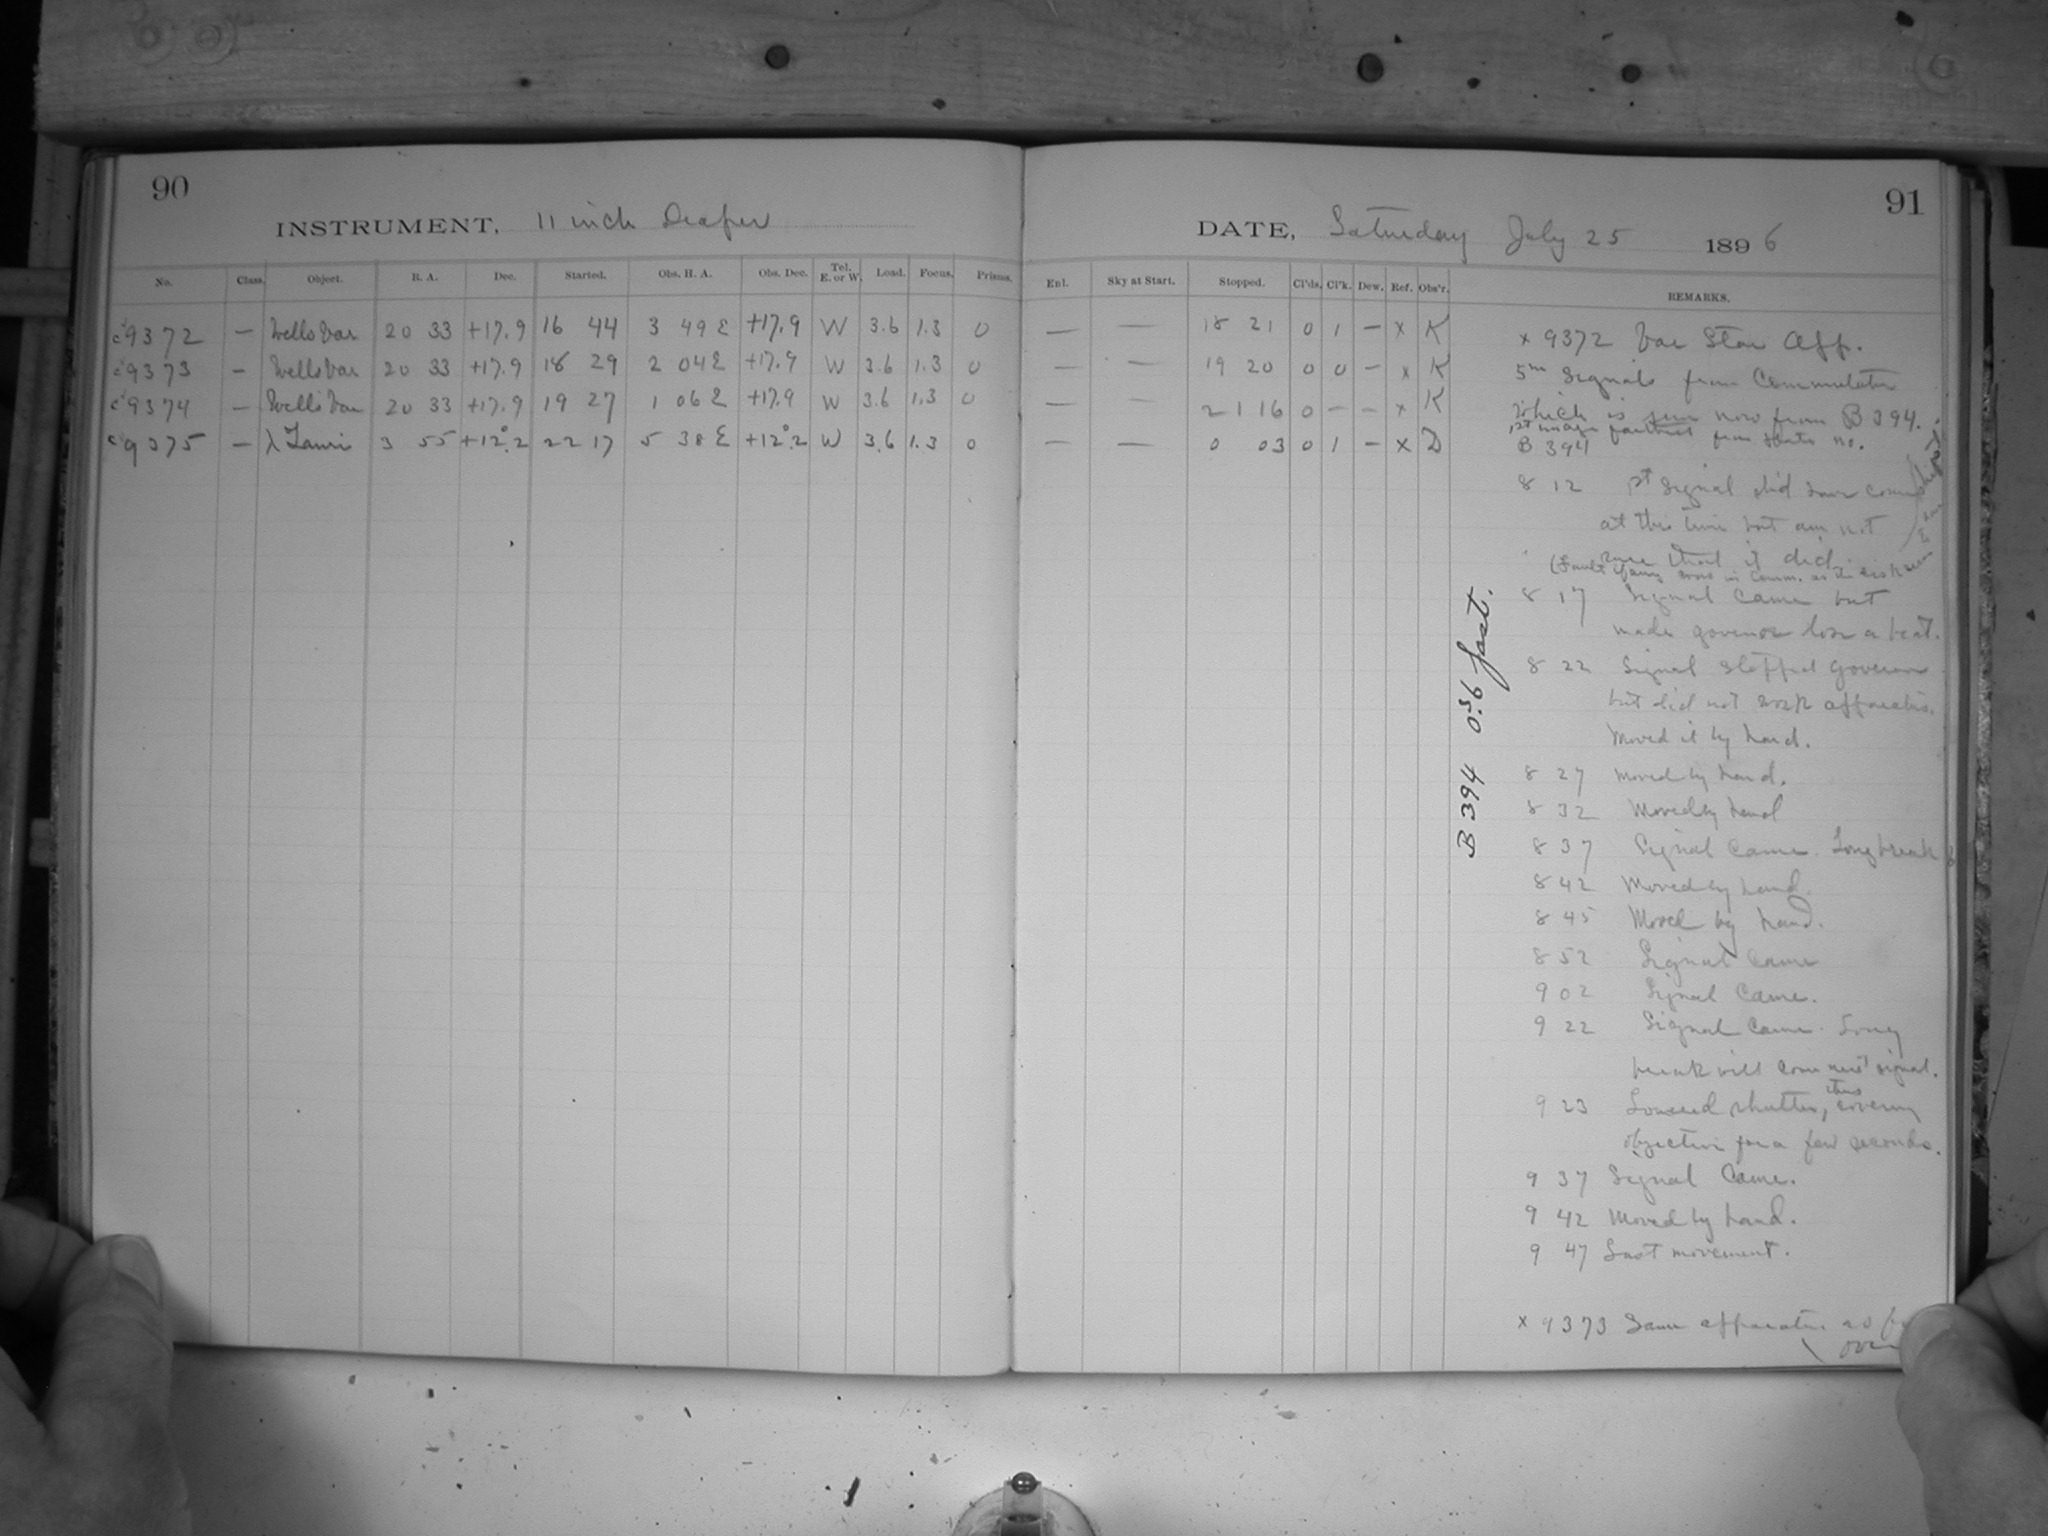 90
INSTRUMENT, 11 inch Draper
No. Class. Object. R. A. Dec. Started. Obs. H. A. Obs. Dec. Tel. E. or W. Load. Focus. Prisms.
c 9372 — Wells Var 20 33 +17.9 16 44 3 49 E +17.9 W 3.6 1.3 0
c 9373 — Wells Var 20 33 +17.9 18 29 2 04 E +17.9 W 3.6 1.3 0
c 9374 — Wells Var 20 33 +17.9 19 27 1 06 E +17.9 W 3.6 1.3 0
c 9375 — λ Tauri 3 55 +12°.2 22 17 5 38 E +12°.2 W 3.6 1.3 0
91
DATE, Saturday July 25 1896
Enl. Sky at Start. Stopped. Cl'ds. Cl'k. Dew. Ref. Obs'r. REMARKS.
— — 18 21 0 1 — x K
— — 19 20 0 0 — x K
— — 21 16 0 — — x K
— — 0 03 0 1 — x D
x 9372 Var Star App.
5m Signals from Commutator
which is run now from B 394.
1st image farthest from plate no.
B 394
8 12 1st Signal did
at this time but am not
sure that it did.
8 17 Signal came but
made governor lose a beat.
8 22 Signal stopped governor
but did not work apparatus.
Moved it by hand.
8 27 moved by hand.
8 32 Moved by hand
8 37 Signal came. Long break
8 42 Moved by hand.
8 45 Moved by hand.
8 52 Signal came
9 02 Signal came.
9 22 Signal came. Long
break will come next signal.
9 23 Lowered shutter, thus covering
objective for a few seconds.
9 37 Signal Came.
9 42 Moved by hand.
9 47 Last movement.
x 9373 Same apparatus as
over
B 394 0s.6 fast.